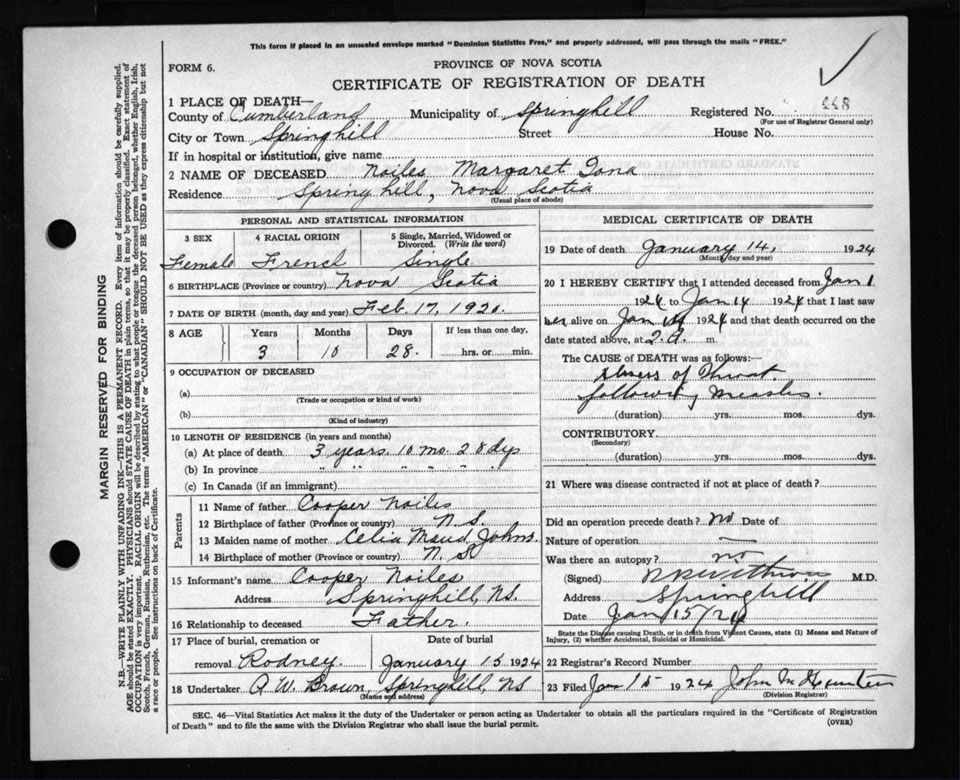 This form if placed in an unsealed envelope marked "Dominion Statistics Free," and properly addressed, will pass through the mails "FREE."
FORM 6.
PROVINCE OF NOVA SCOTIA
CERTIFICATE OF REGISTRATION OF DEATH
1 PLACE OF DEATH—
County of Cumberland Municipality of Springhill Registered No. 448
(For use of Registrar General only)
City or Town Springhill Street House No.
If in hospital or institution, give name
2 NAME OF DECEASED Noiles Margaret Iona
Residence Springhill, Nova Scotia
(Usual place of abode)
MARGIN RESERVED FOR BINDING
N.B.—WRITE PLAINLY WITH UNFADING INK—THIS IS A PERMANENT RECORD. Every item of information should be carefully supplied.
AGE should be stated EXACTLY. PHYSICIANS should STATE CAUSE OF DEATH in plain terms, so that it may be properly classified. Exact statement of
OCCUPATION is very important. RACIAL ORIGIN will be described by stating to what people or tongue the deceased person belonged, whether English, Irish,
Scotch, French, German, Russian, Ruthenian, etc. The terms "AMERICAN" or "CANADIAN" SHOULD NOT BE USED as they express citizenship but not
a race or people. See instructions on back of Certificate.
PERSONAL AND STATISTICAL INFORMATION
3 SEX 4 RACIAL ORIGIN 5 Single, Married, Widowed or
Divorced. (Write the word)
Female French Single
6 BIRTHPLACE (Province or country) Nova Scotia
7 DATE OF BIRTH (month, day and year) Feb. 17, 1920.
8 AGE Years Months Days If less than one day,
3 10 28. hrs. or min.
9 OCCUPATION OF DECEASED
(a)
(Trade or occupation or kind of work)
(b)
(Kind of industry)
10 LENGTH OF RESIDENCE (in years and months)
(a) At place of death 3 years. 10 mo. 28 dys
(b) In province " " " " " "
(c) In Canada (if an immigrant)
Parents
11 Name of father Cooper Noiles
12 Birthplace of father (Province or country) N.S.
13 Maiden name of mother Celia Maud Johns.
14 Birthplace of mother (Province or country) N.S
15 Informant's name Cooper Noiles
Address Springhill, NS.
16 Relationship to deceased Father.
17 Place of burial, cremation or Date of burial
removal Rodney. January 15. 1924
18 Undertaker A. W. Brown, Springhill, NS
(Name and address)
MEDICAL CERTIFICATE OF DEATH
19 Date of death January 14, 1924
(Month, day and year)
20 I HEREBY CERTIFY that I attended deceased from Jan 1
1924 to Jan 14 1924 that I last saw
her alive on Jan 1924 and that death occurred on the
date stated above, at 2. a. m.
The CAUSE of DEATH was as follows:—
of Throat.
following Measles.
(duration) yrs. mos. dys.
CONTRIBUTORY.
(Secondary)
(duration) yrs. mos. dys.
21 Where was disease contracted if not at place of death?
Did an operation precede death? No Date of
Nature of operation —
Was there an autopsy? no
(Signed) M.D.
Address Springhill
Date Jan 15/24
State the Disease causing Death, or in death from Violent Causes, state (1) Means and Nature of
Injury, (2) whether Accidental, Suicidal or Homicidal.
22 Registrar's Record Number
23 Filed Jan 15 1924 John M
(Division Registrar)
SEC. 46—Vital Statistics Act makes it the duty of the Undertaker or person acting as Undertaker to obtain all the particulars required in the "Certificate of Registration
of Death" and to file the same with the Division Registrar who shall issue the burial permit. (OVER)